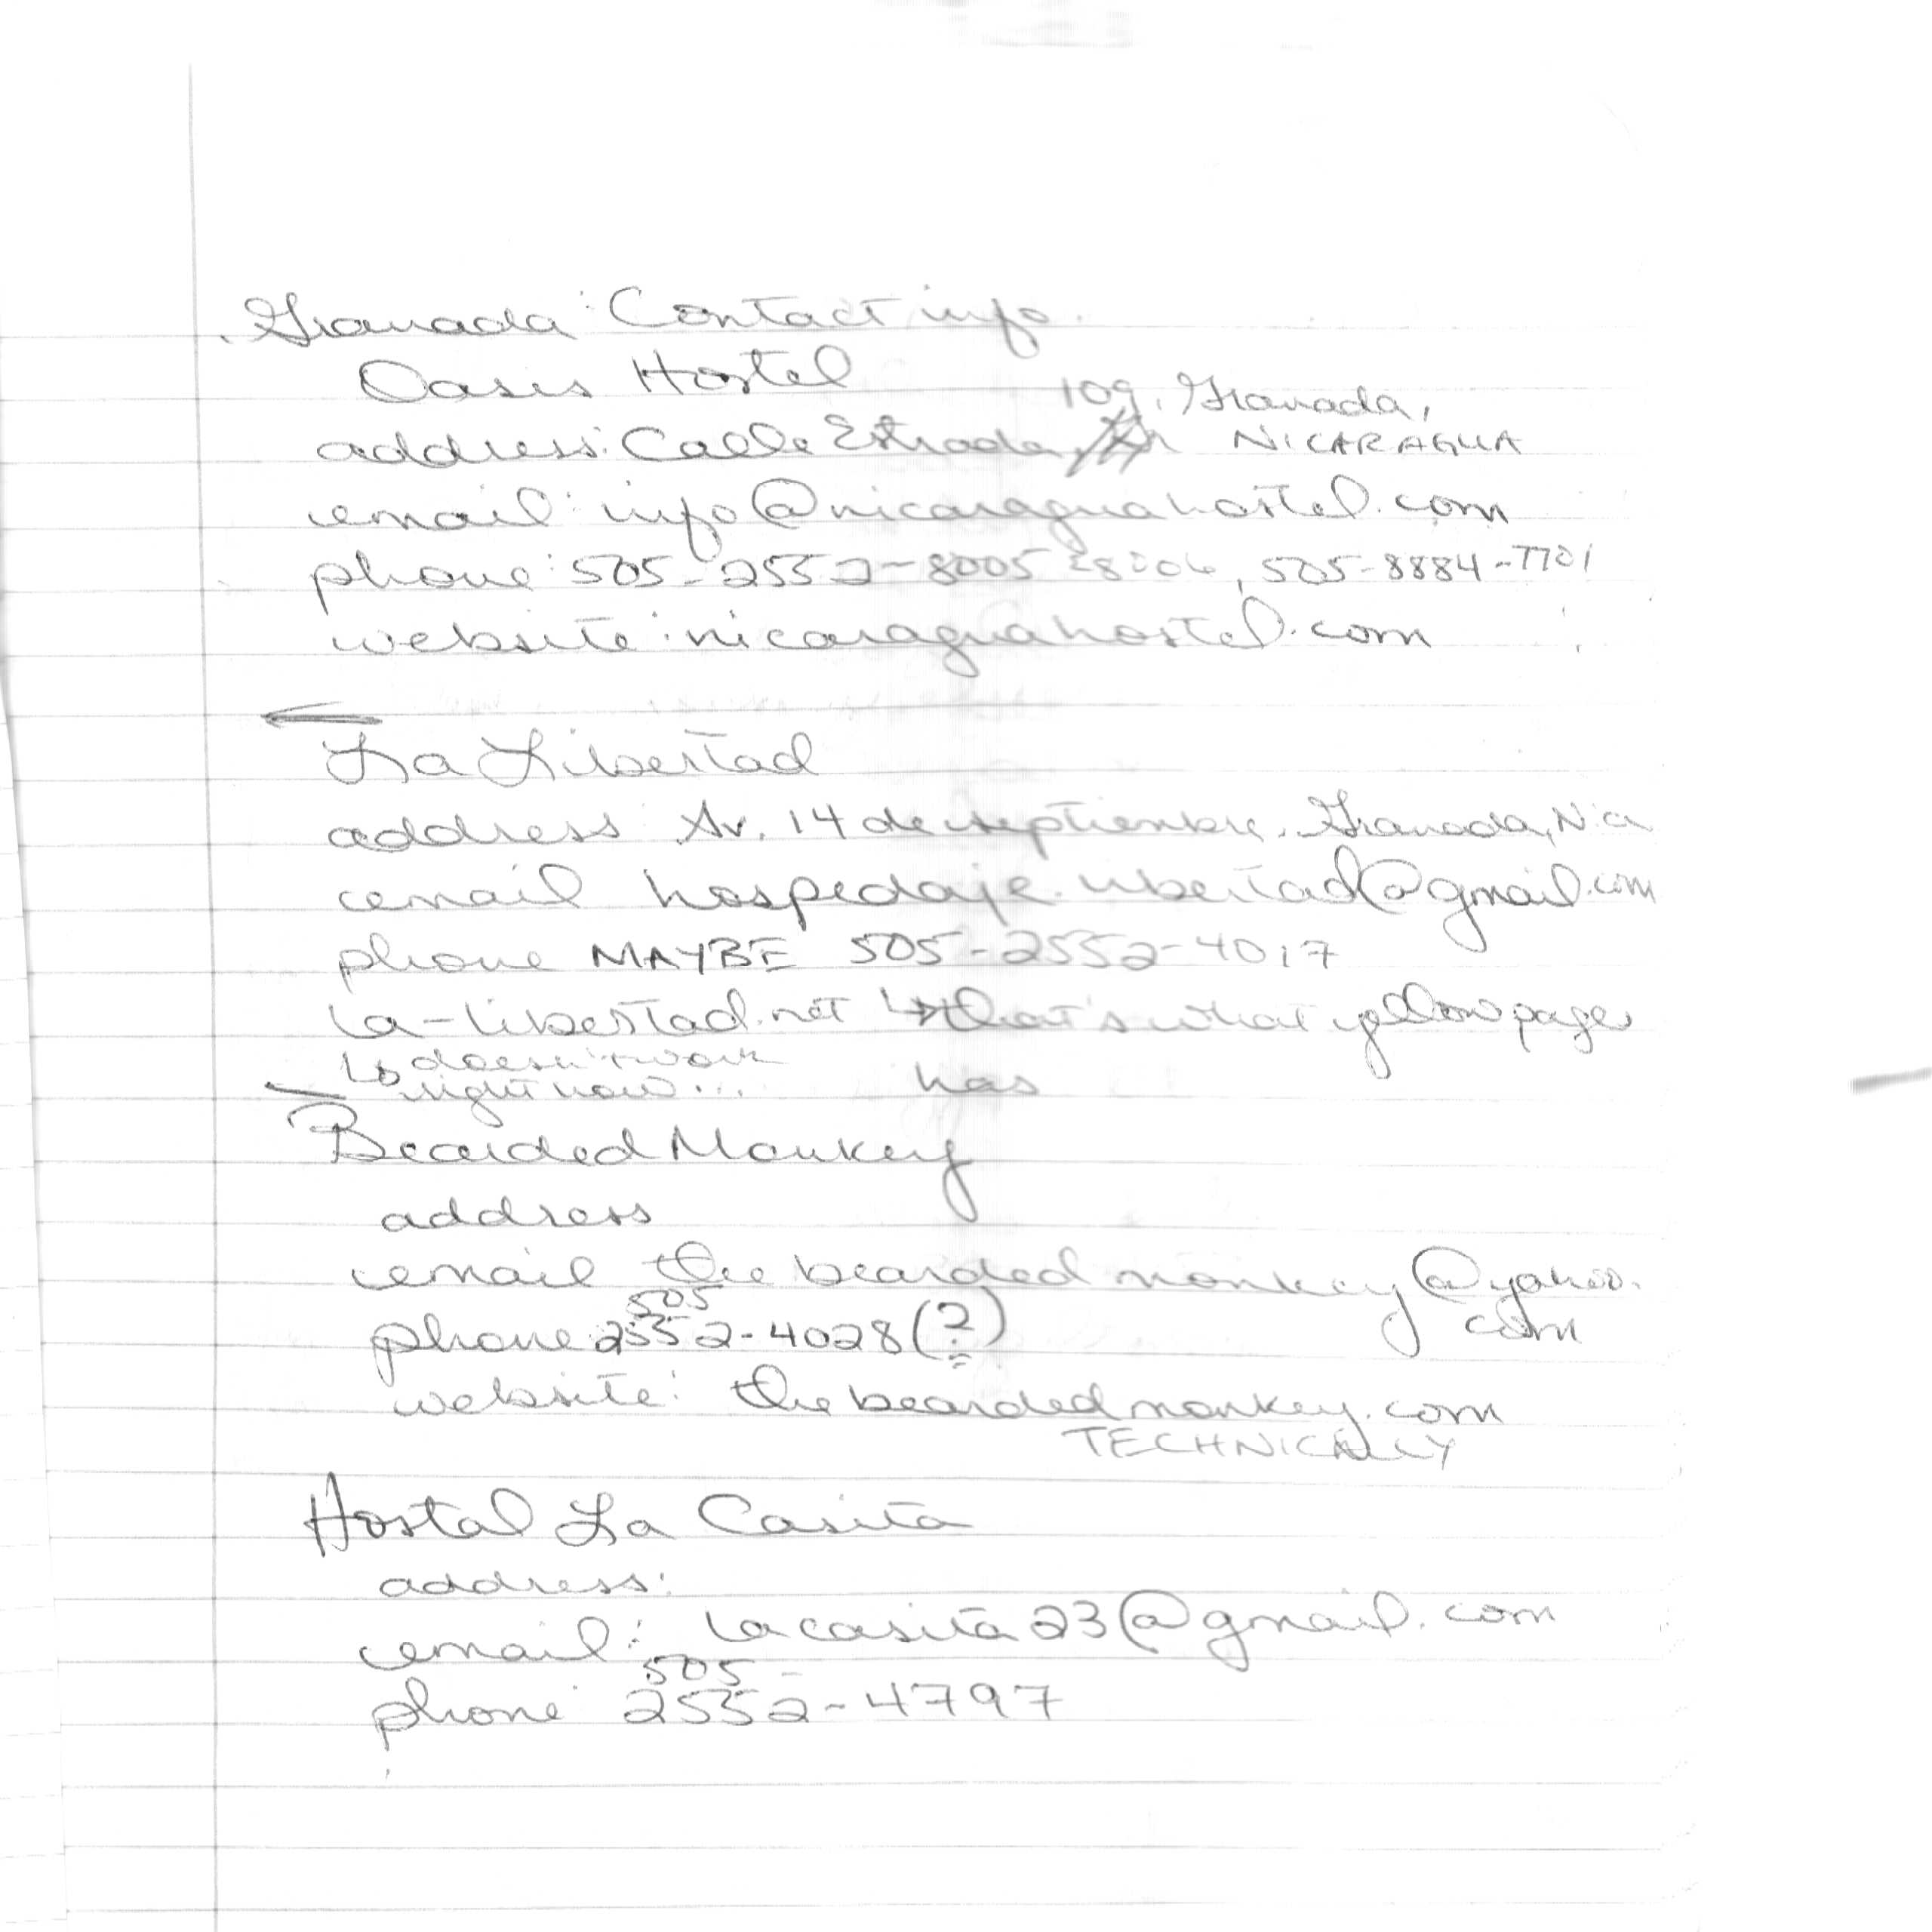 Granada: Contact info
Oasis Hostel
109, Granada,
address: Calle Estrada, NICARAGUA
email: info@nicaraguahostel.com
phone: 505-2552-8005, 505-8884-7701
website: nicaraguahostel.com
La Libertad
address Av. 14 de septiembre, Granada, Nica
email hospedaje.libertad@gmail.com
phone MAYBE 505-2552-4017
la-libertad.net ↳ that's what yellow pages
↳ doesn't work has
right now...
Bearded Monkey
address
email thebeardedmonkey@yahoo.
505 com
phone 2552-4028 (?)
website: thebeardedmonkey.com
TECHNICALLY
Hostal La Casita
address:
email: lacasita23@gmail.com
505-
phone: 2552-4797